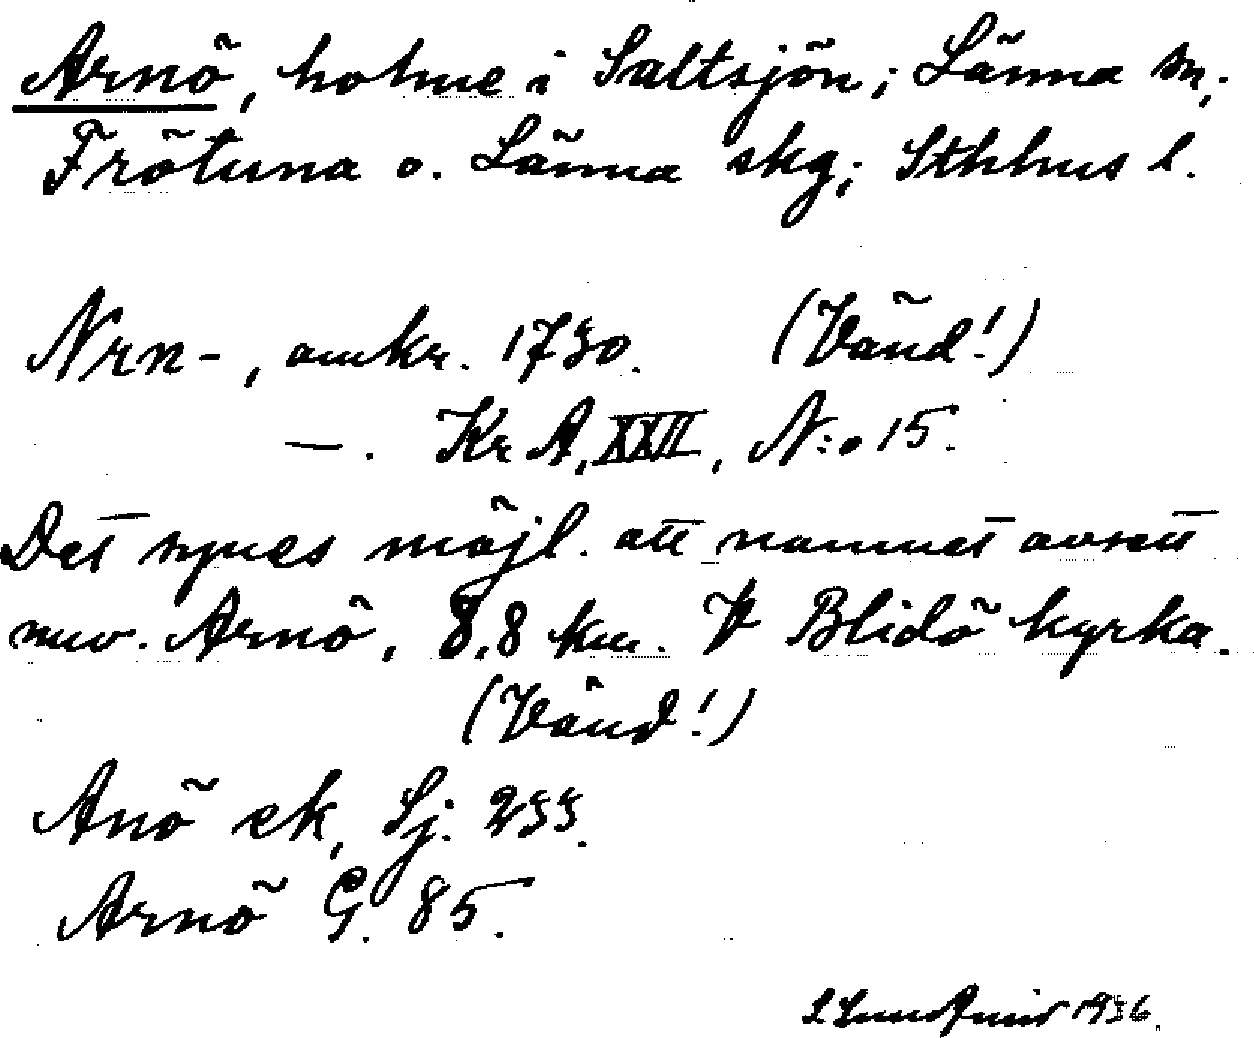 Arnö, holme i Saltsjön; Länna sn,
Frötuna o. Länna skg; Sthlms l.
Nrn-, omkr. 1730. (Vänd!)
—. Kr A, XXII, N:o 15.
Det synes möjl. att namnet avsett
nuv. Arnö, 8,8 km. V Blidö kyrka.
(Vänd!)
Anö ek, Sj. 233.
Arnö G. 85.
1936.